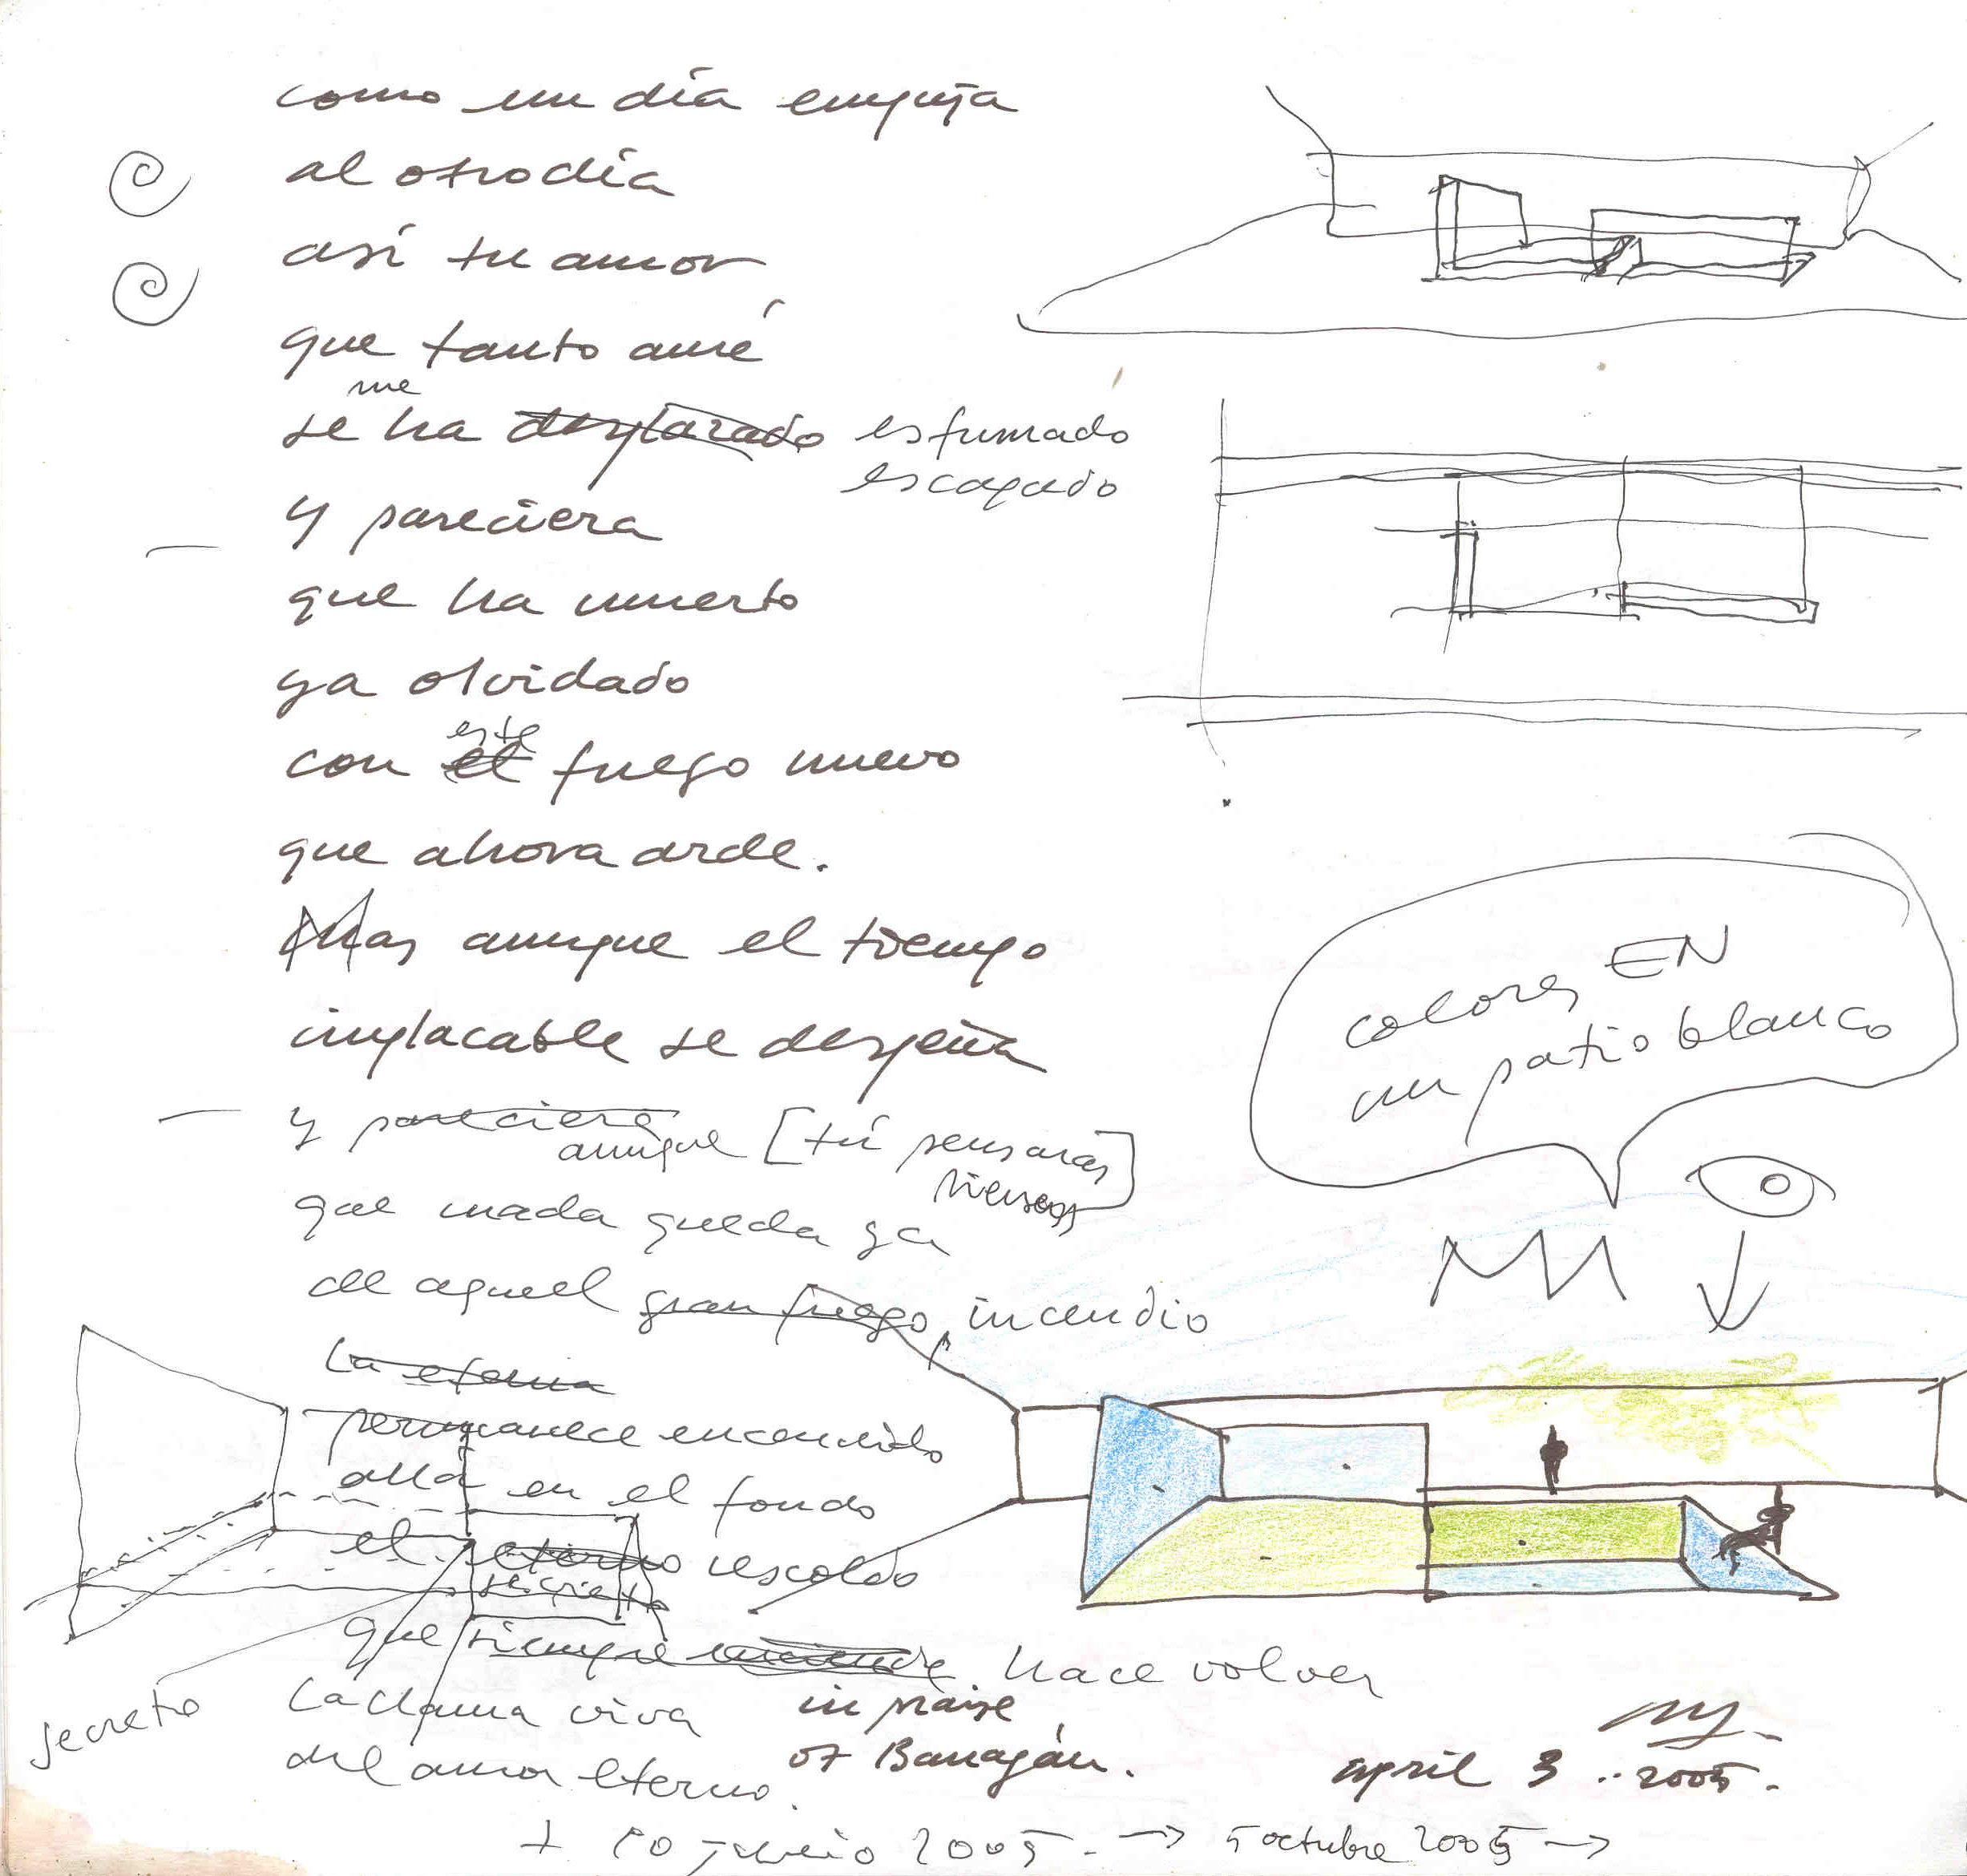 como un día empuja
al otro día
así tu amor
que tanto amé
me
se ha desplazado esfumado
escapado
y pareciera
que ha muerto
ya olvidado
este
con el fuego nuevo
que ahora arde.
Mas aunque el tiempo
implacable se despeña
y pareciera
aunque [tú pensarás
piensas]
que nada queda ya
de aquel gran fuego, incendio
La eterna
permanece encendido
allá en el fondo
el eterno rescoldo
secreto
que siempre hace volver
secreto
La llama viva
del amor eterno.
colores EN
un patio blanco
in praise
of Barragán.
april 3 .. 2005.
2005. → 5 octubre 2005 →